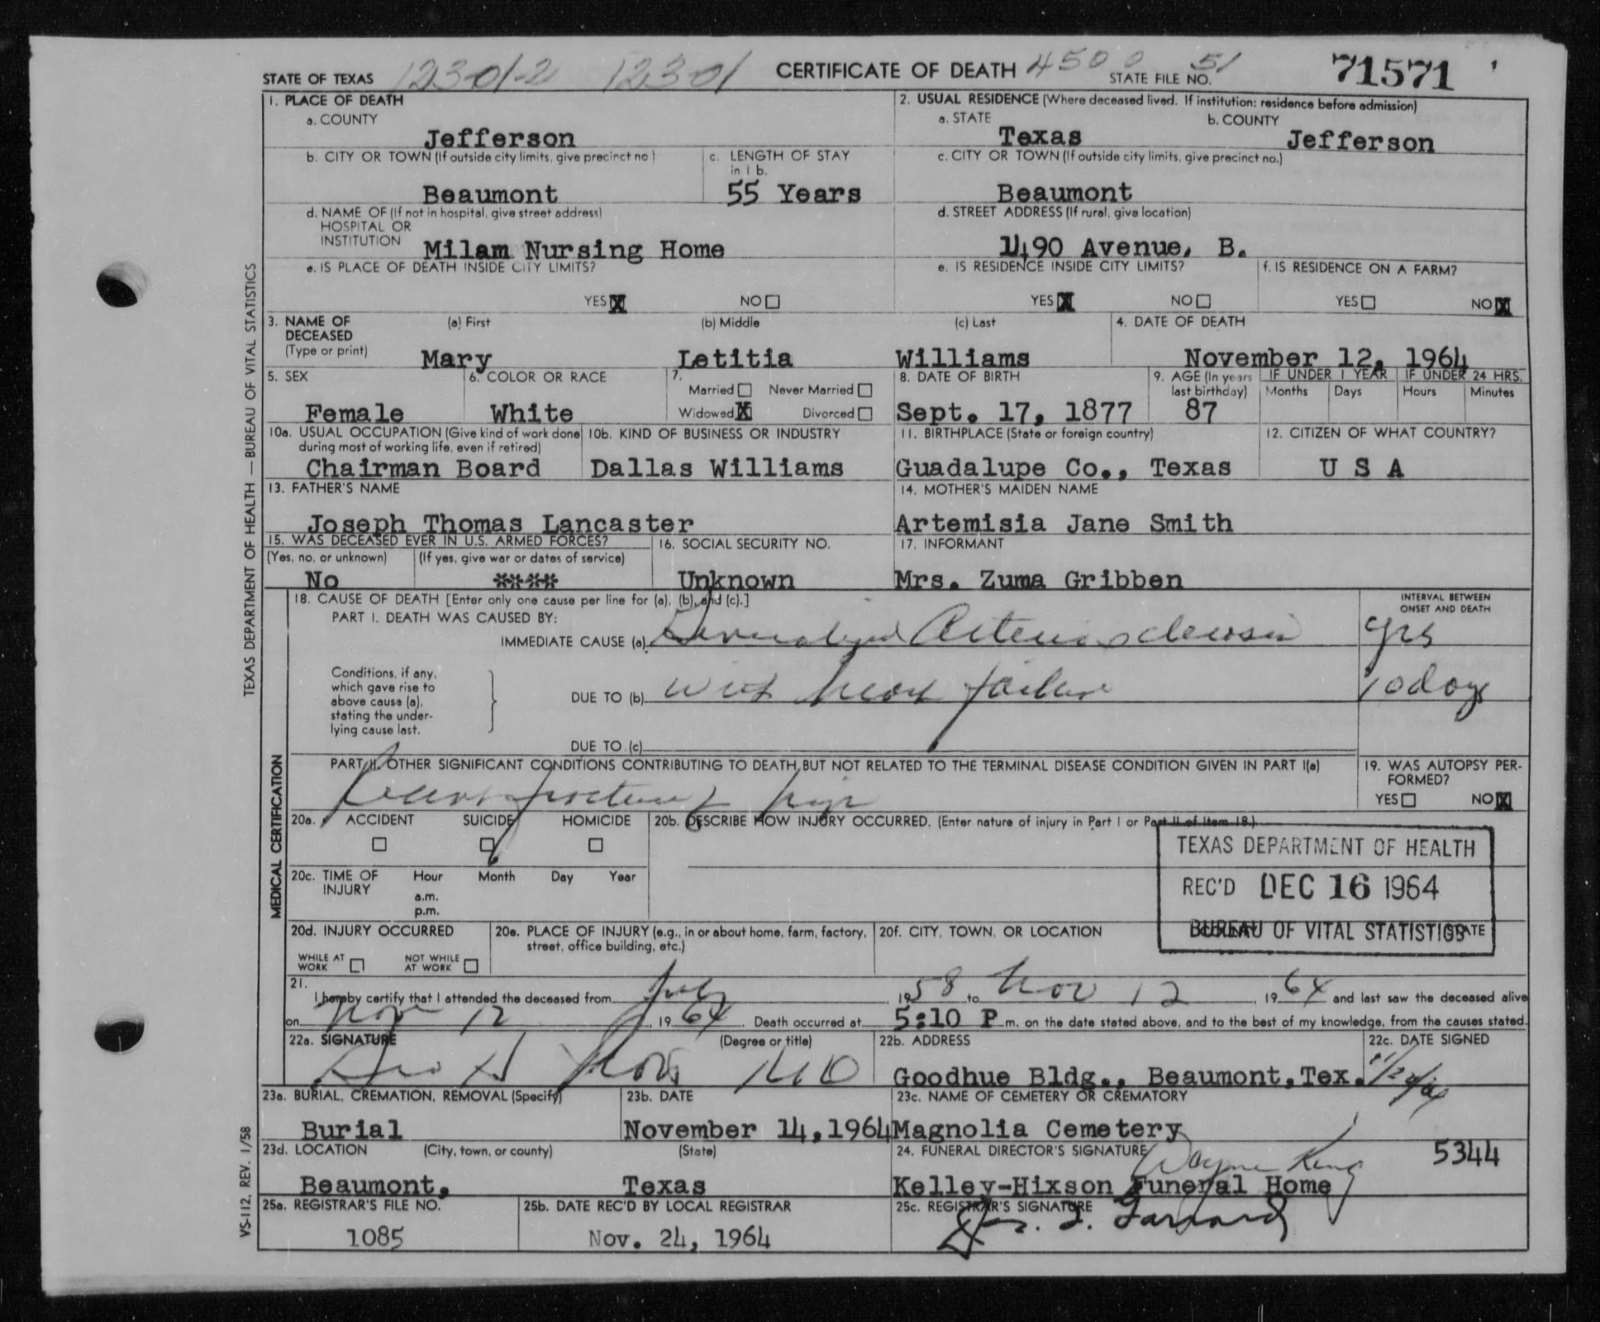 STATE OF TEXAS 12301-2 12301 CERTIFICATE OF DEATH 4500 51 STATE FILE NO. 71571
1. PLACE OF DEATH
a. COUNTY
Jefferson
2. USUAL RESIDENCE (Where deceased lived. If institution: residence before admission)
a. STATE b. COUNTY
Texas Jefferson
b. CITY OR TOWN (If outside city limits, give precinct no.) c. LENGTH OF STAY in 1 b.
Beaumont 55 Years
c. CITY OR TOWN (If outside city limits, give precinct no.)
Beaumont
d. NAME OF (If not in hospital, give street address)
HOSPITAL OR
INSTITUTION Milam Nursing Home
d. STREET ADDRESS (If rural, give location)
1490 Avenue, B.
e. IS PLACE OF DEATH INSIDE CITY LIMITS?
YES X NO
e. IS RESIDENCE INSIDE CITY LIMITS?
YES X NO
f. IS RESIDENCE ON A FARM?
YES NO X
3. NAME OF DECEASED (Type or print)
(a) First (b) Middle (c) Last
Mary Letitia Williams
4. DATE OF DEATH
November 12, 1964
5. SEX
Female
6. COLOR OR RACE
White
7.
Married Never Married
Widowed X Divorced
8. DATE OF BIRTH
Sept. 17, 1877
9. AGE (In years last birthday)
87
IF UNDER 1 YEAR IF UNDER 24 HRS.
Months Days Hours Minutes
10a. USUAL OCCUPATION (Give kind of work done during most of working life, even if retired)
Chairman Board
10b. KIND OF BUSINESS OR INDUSTRY
Dallas Williams
11. BIRTHPLACE (State or foreign country)
Guadalupe Co., Texas
12. CITIZEN OF WHAT COUNTRY?
U S A
13. FATHER'S NAME
Joseph Thomas Lancaster
14. MOTHER'S MAIDEN NAME
Artemisia Jane Smith
15. WAS DECEASED EVER IN U.S. ARMED FORCES?
(Yes, no, or unknown) (If yes, give war or dates of service)
No ****
16. SOCIAL SECURITY NO.
Unknown
17. INFORMANT
Mrs. Zuma Gribben
18. CAUSE OF DEATH [Enter only one cause per line for (a), (b), and (c).]
INTERVAL BETWEEN ONSET AND DEATH
PART I. DEATH WAS CAUSED BY:
IMMEDIATE CAUSE (a) Generalized Arteriosclerosis yrs
Conditions, if any,
which gave rise to
above cause (a),
stating the under-
lying cause last.
DUE TO (b) with heart failure 10 days
DUE TO (c)
PART II. OTHER SIGNIFICANT CONDITIONS CONTRIBUTING TO DEATH BUT NOT RELATED TO THE TERMINAL DISEASE CONDITION GIVEN IN PART I(a)
Recent fracture of hip
19. WAS AUTOPSY PER-
FORMED?
YES NO X
20a. ACCIDENT SUICIDE HOMICIDE
20b. DESCRIBE HOW INJURY OCCURRED. (Enter nature of injury in Part I or Part II of item 18.)
20c. TIME OF INJURY
Hour Month Day Year
a.m.
p.m.
TEXAS DEPARTMENT OF HEALTH
REC'D DEC 16 1964
BUREAU OF VITAL STATISTICS
20d. INJURY OCCURRED
WHILE AT WORK NOT WHILE AT WORK
20e. PLACE OF INJURY (e.g., in or about home, farm, factory, street, office building, etc.)
20f. CITY, TOWN, OR LOCATION STATE
21.
I hereby certify that I attended the deceased from July 1958 to Nov 12, 1964 and last saw the deceased alive
on Nov 12, 1964. Death occurred at 5:10 P m. on the date stated above, and to the best of my knowledge, from the causes stated.
22a. SIGNATURE (Degree or title)
MD
22b. ADDRESS
Goodhue Bldg., Beaumont, Tex.
22c. DATE SIGNED
23a. BURIAL, CREMATION, REMOVAL (Specify)
Burial
23b. DATE
November 14, 1964
23c. NAME OF CEMETERY OR CREMATORY
Magnolia Cemetery
23d. LOCATION (City, town, or county) (State)
Beaumont, Texas
24. FUNERAL DIRECTOR'S SIGNATURE
Wayne King 5344
Kelley-Hixson Funeral Home
25a. REGISTRAR'S FILE NO.
1085
25b. DATE REC'D BY LOCAL REGISTRAR
Nov. 24, 1964
25c. REGISTRAR'S SIGNATURE
TEXAS DEPARTMENT OF HEALTH — BUREAU OF VITAL STATISTICS
MEDICAL CERTIFICATION
VS-112, REV. 1/58